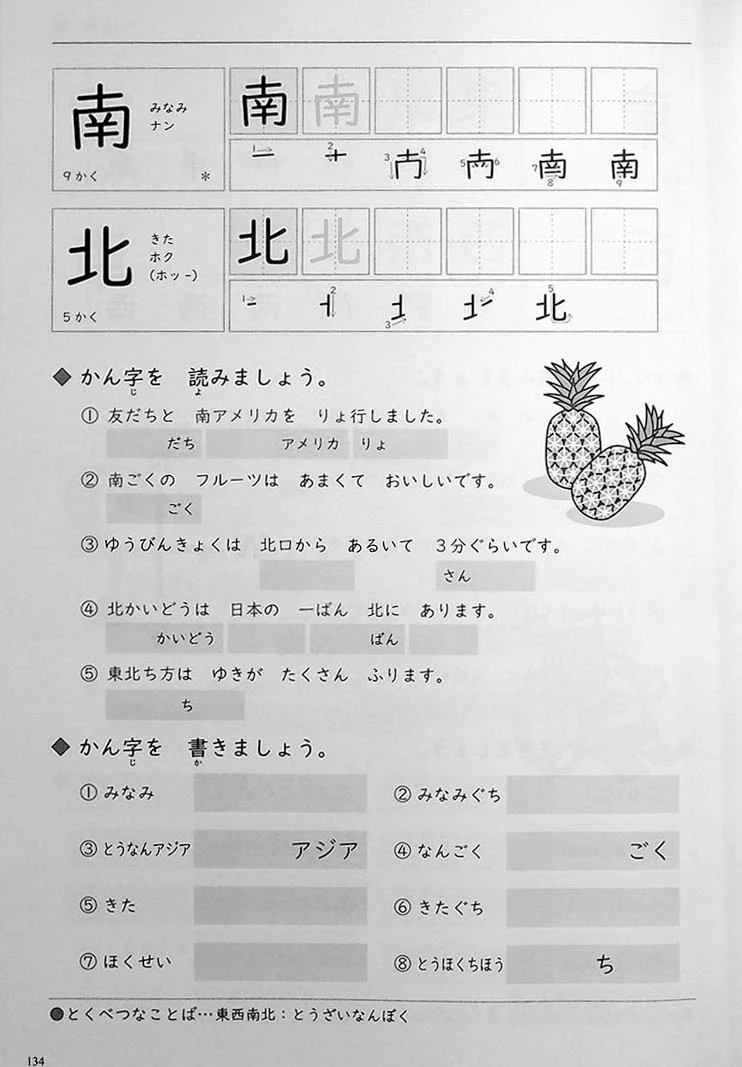 南 みなみ
ナン
9かく *
南 南
1 2 3 4 5 6 7 8 9
北 きた
ホク
(ホッ-)
5かく
北 北
1 2 3 4 5
◆ かん字を 読みましょう。
じ よ
① 友だちと 南アメリカを りょ行しました。
だち アメリカ りょ
② 南ごくの フルーツは あまくて おいしいです。
ごく
③ ゆうびんきょくは 北口から あるいて 3分ぐらいです。
さん
④ 北かいどうは 日本の 一ばん 北に あります。
かいどう ばん
⑤ 東北ち方は ゆきが たくさん ふります。
ち
◆ かん字を 書きましょう。
じ か
① みなみ ② みなみぐち
③ とうなんアジア アジア ④ なんごく ごく
⑤ きた ⑥ きたぐち
⑦ ほくせい ⑧ とうほくちほう ち
●とくべつなことば…東西南北：とうざいなんぼく
134